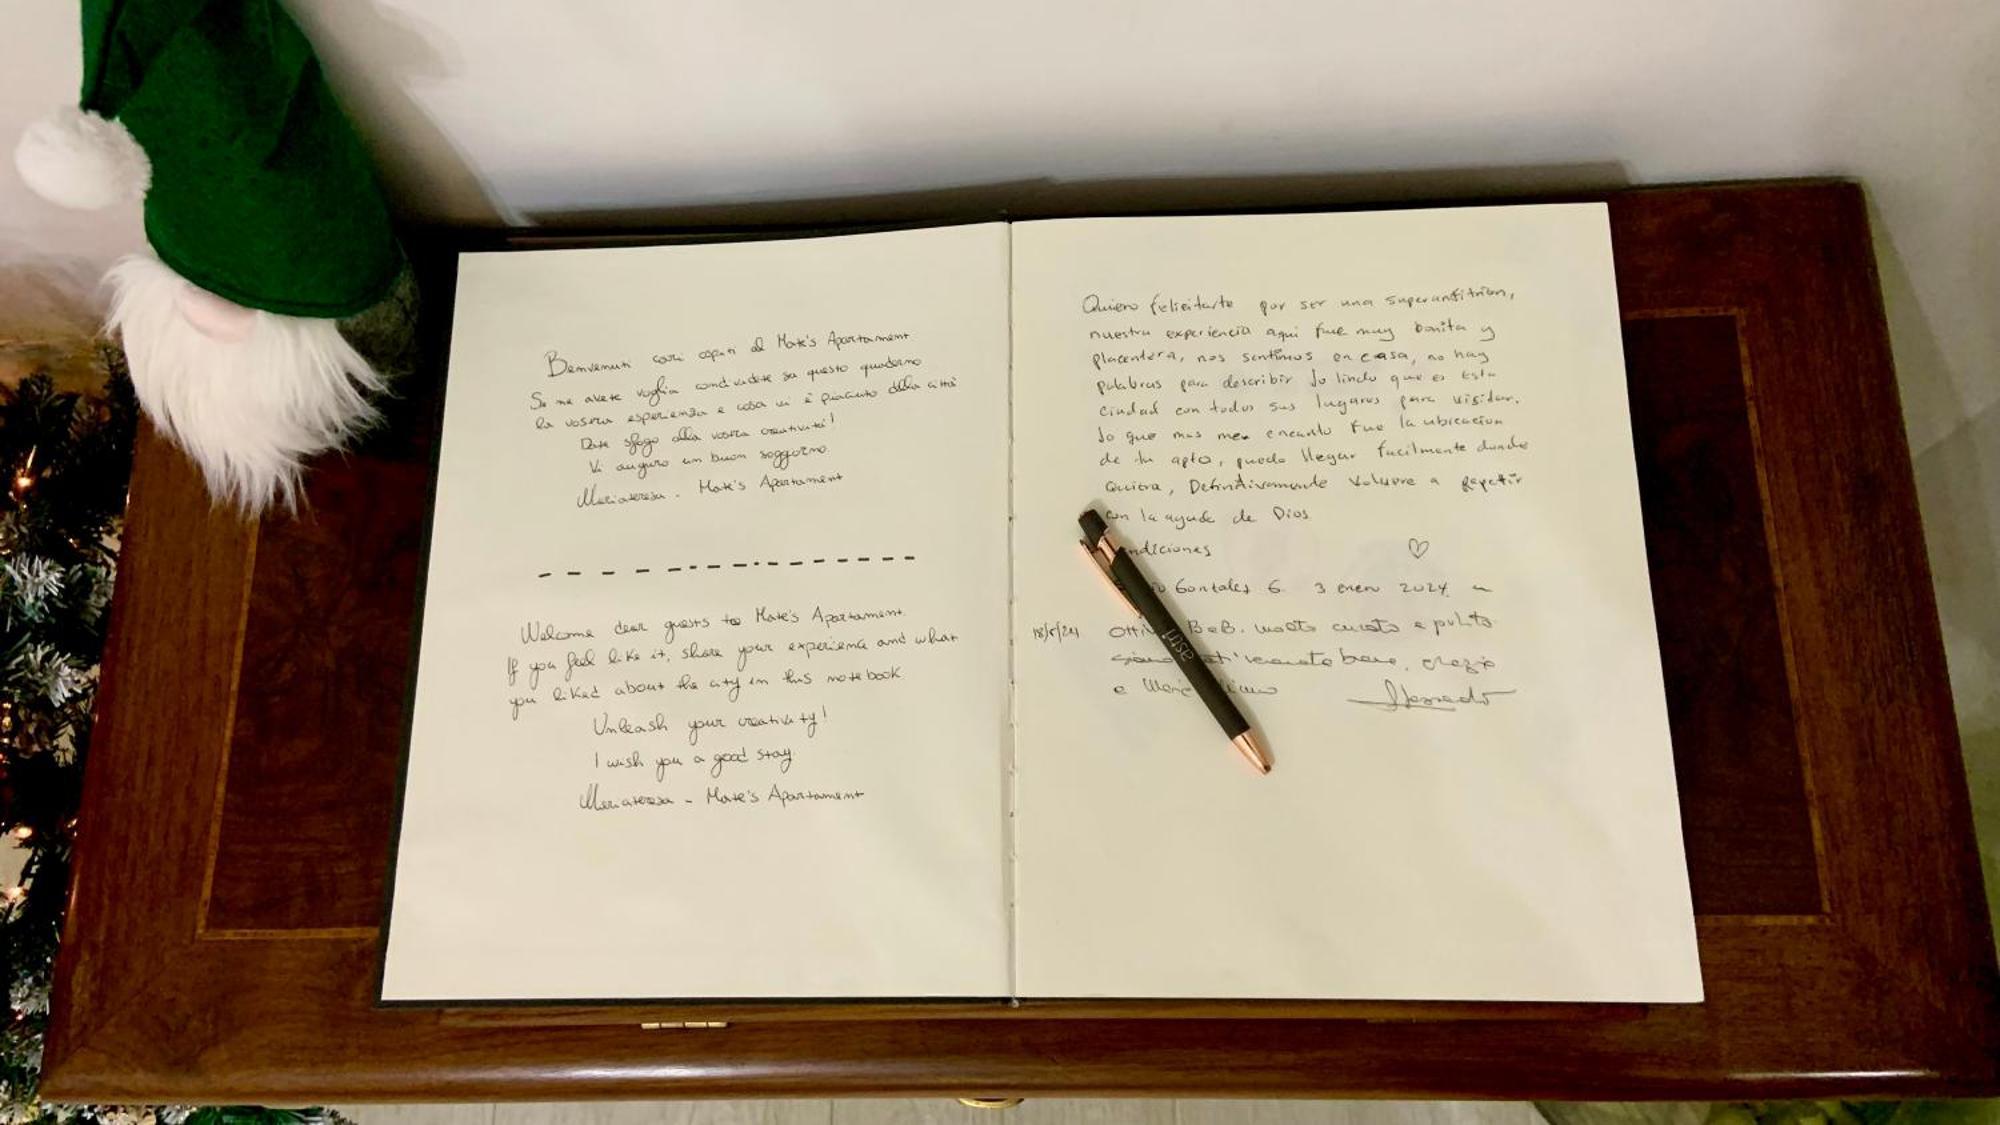 Benvenuti cari ospiti al Mate's Apartament
Se ne avete voglia condividete su questo quaderno
la vostra esperienza e cosa vi è piaciuto della città
Date sfogo alla vostra creatività!
Vi auguro un buon soggiorno
Mariateresa - Mate's Apartament
Welcome dear guests to Mate's Apartament.
If you feel like it, share your experience and what
you liked about the city in this notebook
Unleash your creativity!
I wish you a good stay.
Mariateresa - Mate's Apartament
Quiero felicitarte por ser una superanfitrion,
nuestra experiencia aqui fue muy bonita y
placentera, nos sentimos en casa, no hay
palabras para describir lo lindo que es esta
ciudad con todos sus lugares para visitar.
lo que mas me encanto fue la ubicacion
de tu apto, puedo llegar facilmente donde
quiera, Definitivamente volvere a repetir
con la ayuda de Dios
ndiciones ♡
Gonzales G. 3 enero 2024
18/5/24 B&B. molto curato e pulito
siamo bene, grazie
e
astri